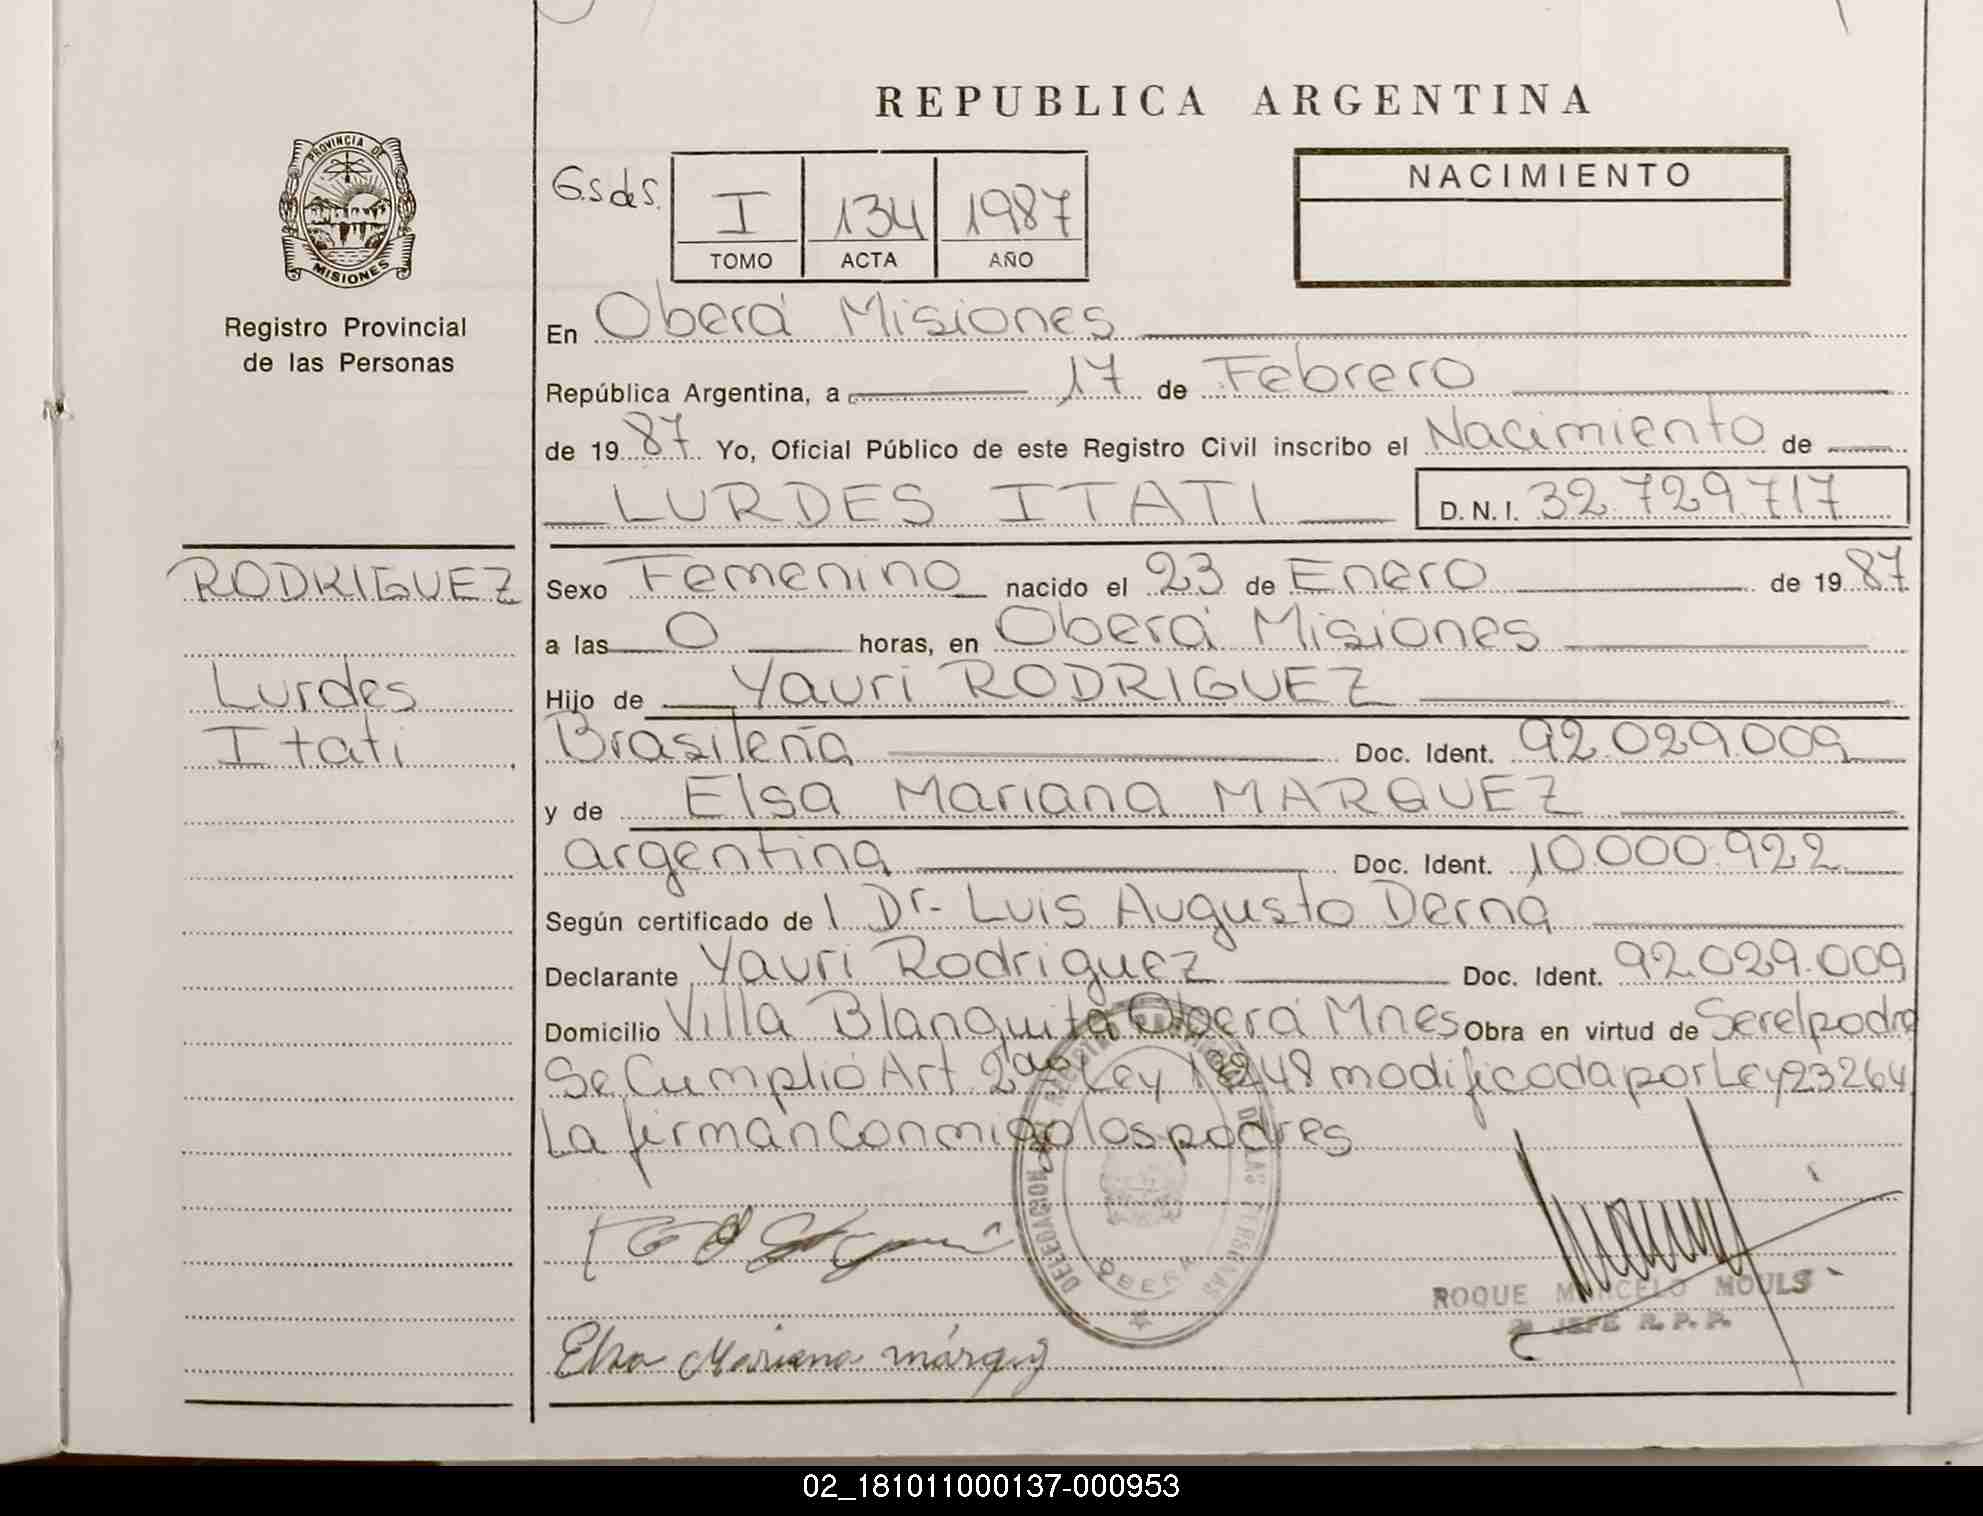 REPUBLICA ARGENTINA
PROVINCIA DE
MISIONES
Registro Provincial
de las Personas
G.S de S.
I 134 1987
TOMO ACTA AÑO
NACIMIENTO
En Oberá Misiones
República Argentina, a 17 de Febrero
de 1987 Yo, Oficial Público de este Registro Civil inscribo el Nacimiento de
LURDES ITATI D.N.I. 32.729.717
RODRIGUEZ
Lurdes
Itati
Sexo Femenino nacido el 23 de Enero de 1987
a las 0 horas, en Oberá Misiones
Hijo de Yauri RODRIGUEZ
Brasileña Doc. Ident. 92.029.009
y de Elsa Mariana MARQUEZ
argentina Doc. Ident. 10.000.922
Según certificado de l Dr. Luis Augusto Derna
Declarante Yauri Rodriguez Doc. Ident. 92.029.009
Domicilio Villa Blanquita Oberá Mnes Obra en virtud de Ser el padre
Se Cumplió Art 2do Ley 18248 modificada por Ley 23264
La firman conmigo los padres
DELEGACION
DE LAS PERSONAS
OBERA
ROQUE MARCELO MOULS
JEFE R.P.P.
Elsa Mariana márquez
02_181011000137-000953